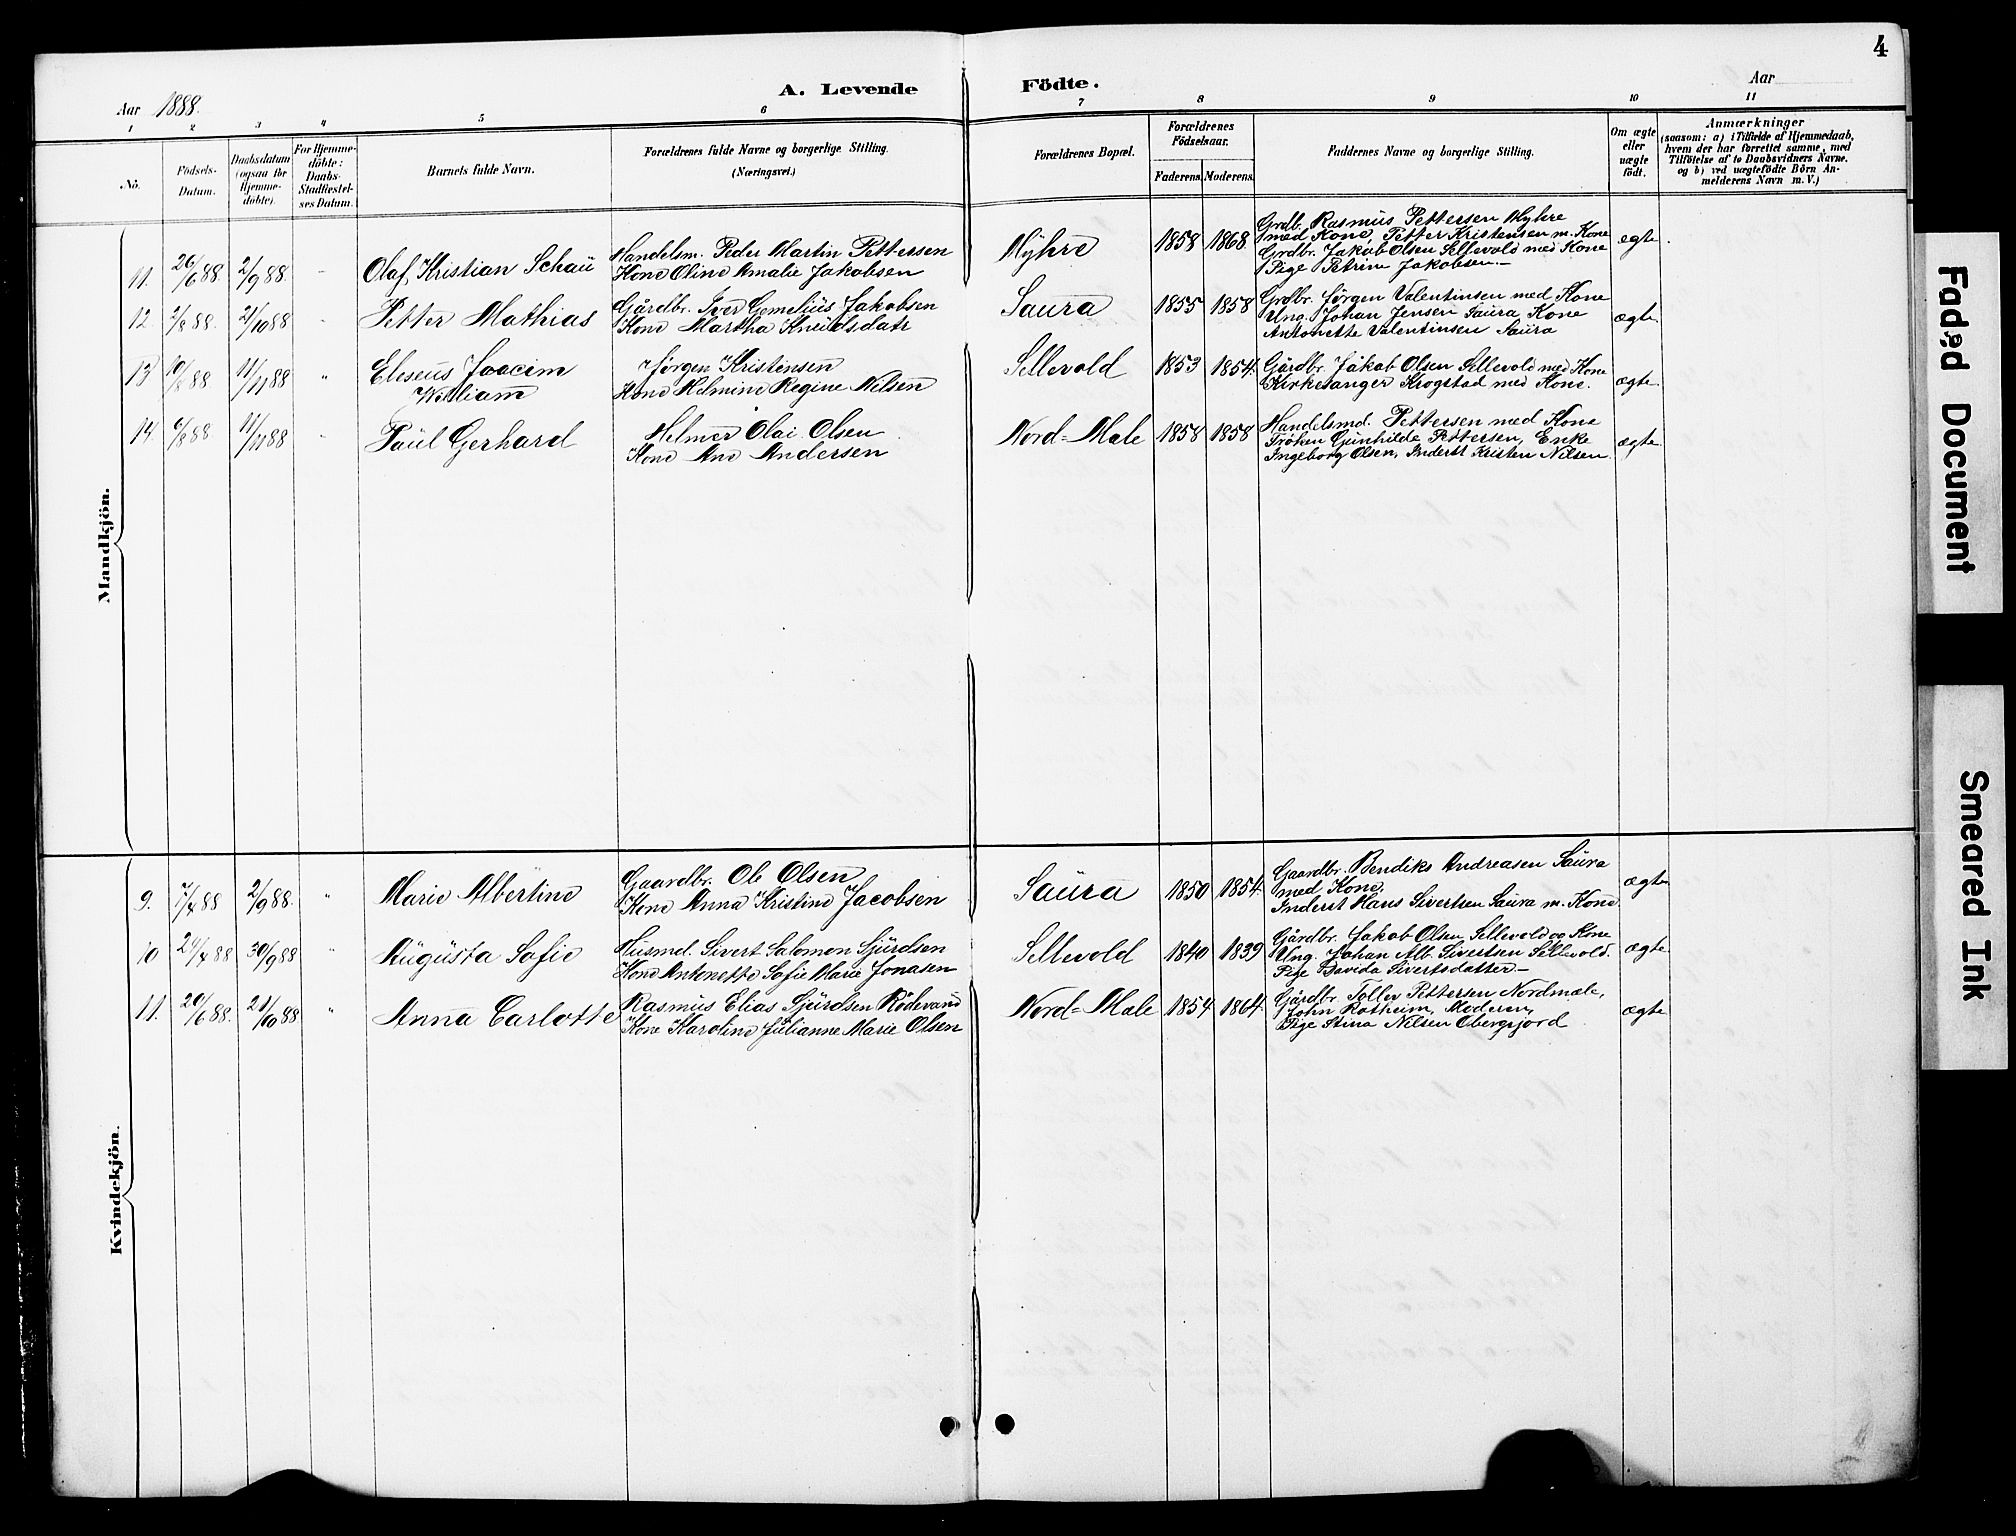 4
Aar 1888.
A. Levende Födte.
Aar
1 2 3 4 5 6 7 8 9 10 11
No.
Födsels-Datum.
Daabsdatum (ogsaa for Hjemmedöbte).
For Hjemmedöbte: Daabs-Stadfæstelses Datum.
Barnets fulde Navn.
Forældrenes fulde Navne og borgerlige Stilling.
(Næringsvei.)
Forældrenes Bopæl.
Forældrenes Födselsaar.
Faderens. Moderens.
Faddernes Navne og borgerlige Stilling.
Om ægte eller uægte födt.
Anmærkninger
(saasom: a) i Tilfælde af Hjemmedaab,
hvem der har forrettet samme, med
Tilföielse af to Daabsvidners Navne.
og b) ved uægtefödte Börn An-
melderens Navn m. V.)
Mandkjön.
11. 26/6 88. 2/9 88. Olaf Kristian Schau
Handelsm. Peder Martin Pettersen
Kone Oline Amalie Jakobsen
Nykre 1858 1868
Grdb. Rasmus Pettersen Nykre
med Kone Petter Kristensen m. Kone
Grdbr. Jakob Olsen Sellevold med Kone
Pige Petrine Jakobsen.—
ægte.
12. 2/8 88. 21/10 88 Petter Mathias
Gårdbr. Iver Cornelius Jakobsen
Kone Martha Knudsdatr
Saura 1855 1858
Grdbr. Jørgen Valentinsen med Kone
Ung. Johan Jensen Saura, Kone
Antonette Valentinsen Saura
ægte.
13 10/8 88. 11/11 88 " Eliseus Joacim
William
Jørgen Kristensen
Kone Helmine Regine Nilsen
Sellevold 1853 1854.
Gårdbr. Jakob Olsen Sellevold med Kone
Kirkesanger Krogstad med Kone.
ægte.
14. 6/8 88. 11/11 88 Paul Gerhard
Helmer Olai Olsen
Kone Ane Andersen
Nord-Male 1858 1858
Handelsmd. Pettersen med Kone
Frøken Gunhilde Pettersen, Enke
Ingeborg Olsen, Inderst Kristen Nilsen.
ægte.
Kvindekjön.
9. 7/4 88 2/9 88. " Marie Albertine
Gaardbr. Ole Olsen
Kone Anna Kristine Jacobsen
Saura 1850 1854.
Gaardbr. Bendiks Andreasen Saura
med Kone.
Inderst Hans Sivertsen Saura m. Kone.
ægte
10 24/4 88 30/9 88 " Augusta Sofie
Husmd. Sivert Salomon Sjurdsen
Kone Antonette Sofie Marie Jonasen
Sellevold 1840 1839
Gårdbr. Jakob Olsen Sellevold og Kone
Ung. Johan Alb. Sivertsen Sellevold.
Pige Davida Sivertsdatter—
ægte
11. 20/6 88. 21/10 88 " Anna Carlotte
Rasmus Elias Sjurdsen Rödevand
Kone Karoline Julianne Marie Olsen
Nord-Male 1854 1864.
Gårdbr. Toller Pettersen Nordmæle,
John Rotheim, Moderen,
Pige Stina Nilsen Obergfjord
ægte
Faded Document
Smeared Ink